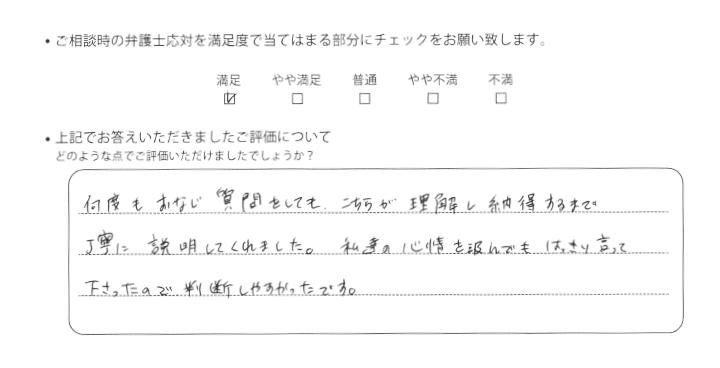 • ご相談時の弁護士応対を満足度で当てはまる部分にチェックをお願い致します。
満足 やや満足 普通 やや不満 不満
☑ ☐ ☐ ☐ ☐
• 上記でお答えいただきましたご評価について
どのような点でご評価いただけましたでしょうか？
何度もおなじ質問をしても、こちらが理解し納得するまで
丁寧に説明してくれました。私達の心情を汲んでもはっきり言って
下さったので判断しやすかったです。